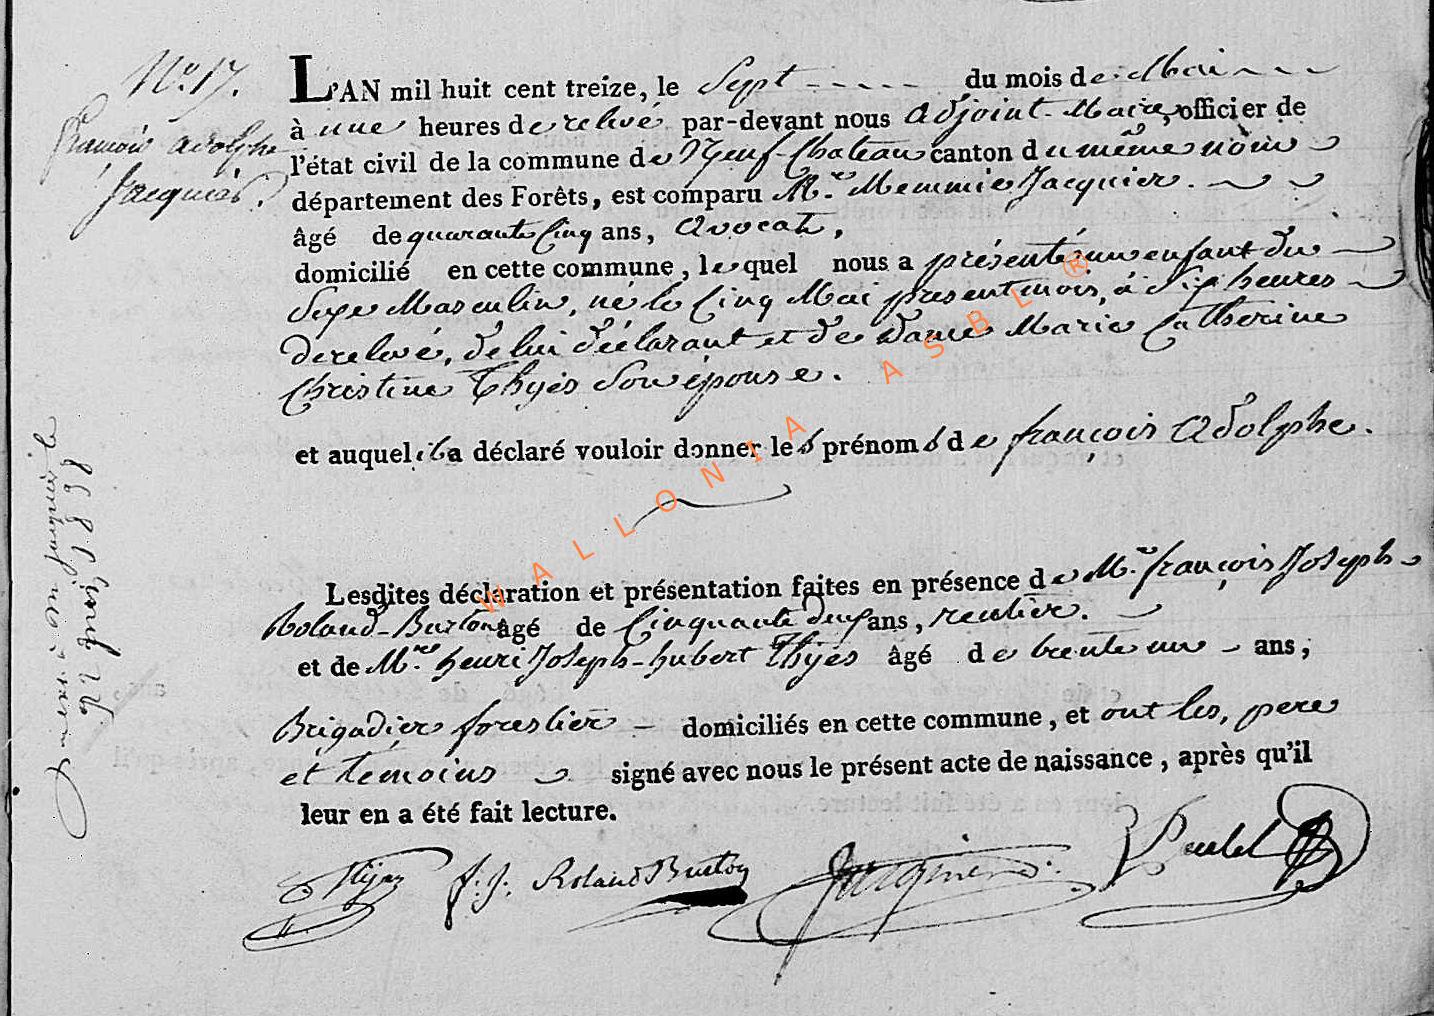 N.o 17.
françois adolphe
Jacquier.
L'AN mil huit cent treize, le Sept du mois de Mai
à une heures de relevé par-devant nous Adjoint-Maire, officier de
l'état civil de la commune de Neuf-Chateau canton du même nom
département des Forêts, est comparu M.re Memmie Jacquier.
âgé de quarante Cinq ans, Avocat,
domicilié en cette commune, lequel nous a présenté un enfant du
Sexe Masculin, né le Cinq Mai present mois, à Six heures
de relevé, de lui déclarant et de Dame Marie Catherine
Christine Thyes Son épouse.
et auquel il a déclaré vouloir donner les prénoms de françois Adolphe.
Lesdites déclaration et présentation faites en présence de M.re françois Joseph
Roland-Burton âgé de Cinquante deux ans, rentier.
et de M.re henri Joseph-hubert Thyes âgé de trente un ans,
Brigadier forestier domiciliés en cette commune, et ont les, pere
et temoins signé avec nous le présent acte de naissance, après qu'il
leur en a été fait lecture.
Thyes f: j: Roland Burton Jacquier
à M jacquier le
22 1838
WALLONIA ASBL ®